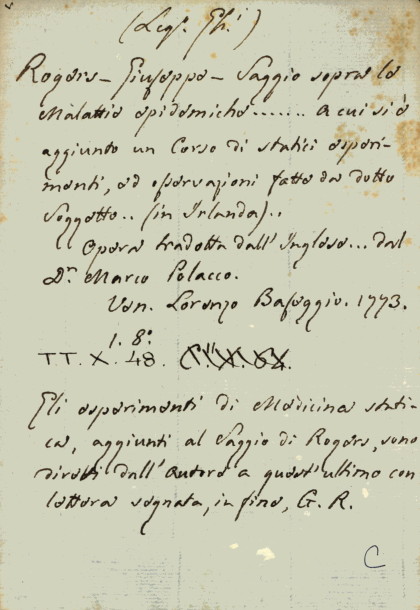 (Leg. Gh.)
Rogers - Giuseppe - Saggio sopra le
Malattie epidemiche....... A cui si è
aggiunto un Corso di statici esperi-
menti, ed osservazioni fatte da detto
Soggetto.. (in Irlanda)..
Opera tradotta dall'Inglese... dal
Dr. Marco Polacco.
Ven. Lorenzo Baseggio. 1773.
1. 8º
TT. X. 48.
Gli esperimenti di Medicina stati-
ca, aggiunti al Saggio di Rogers, sono
diretti dall'Autore a quest'ultimo con
lettera segnata, in fine, G. R.
C